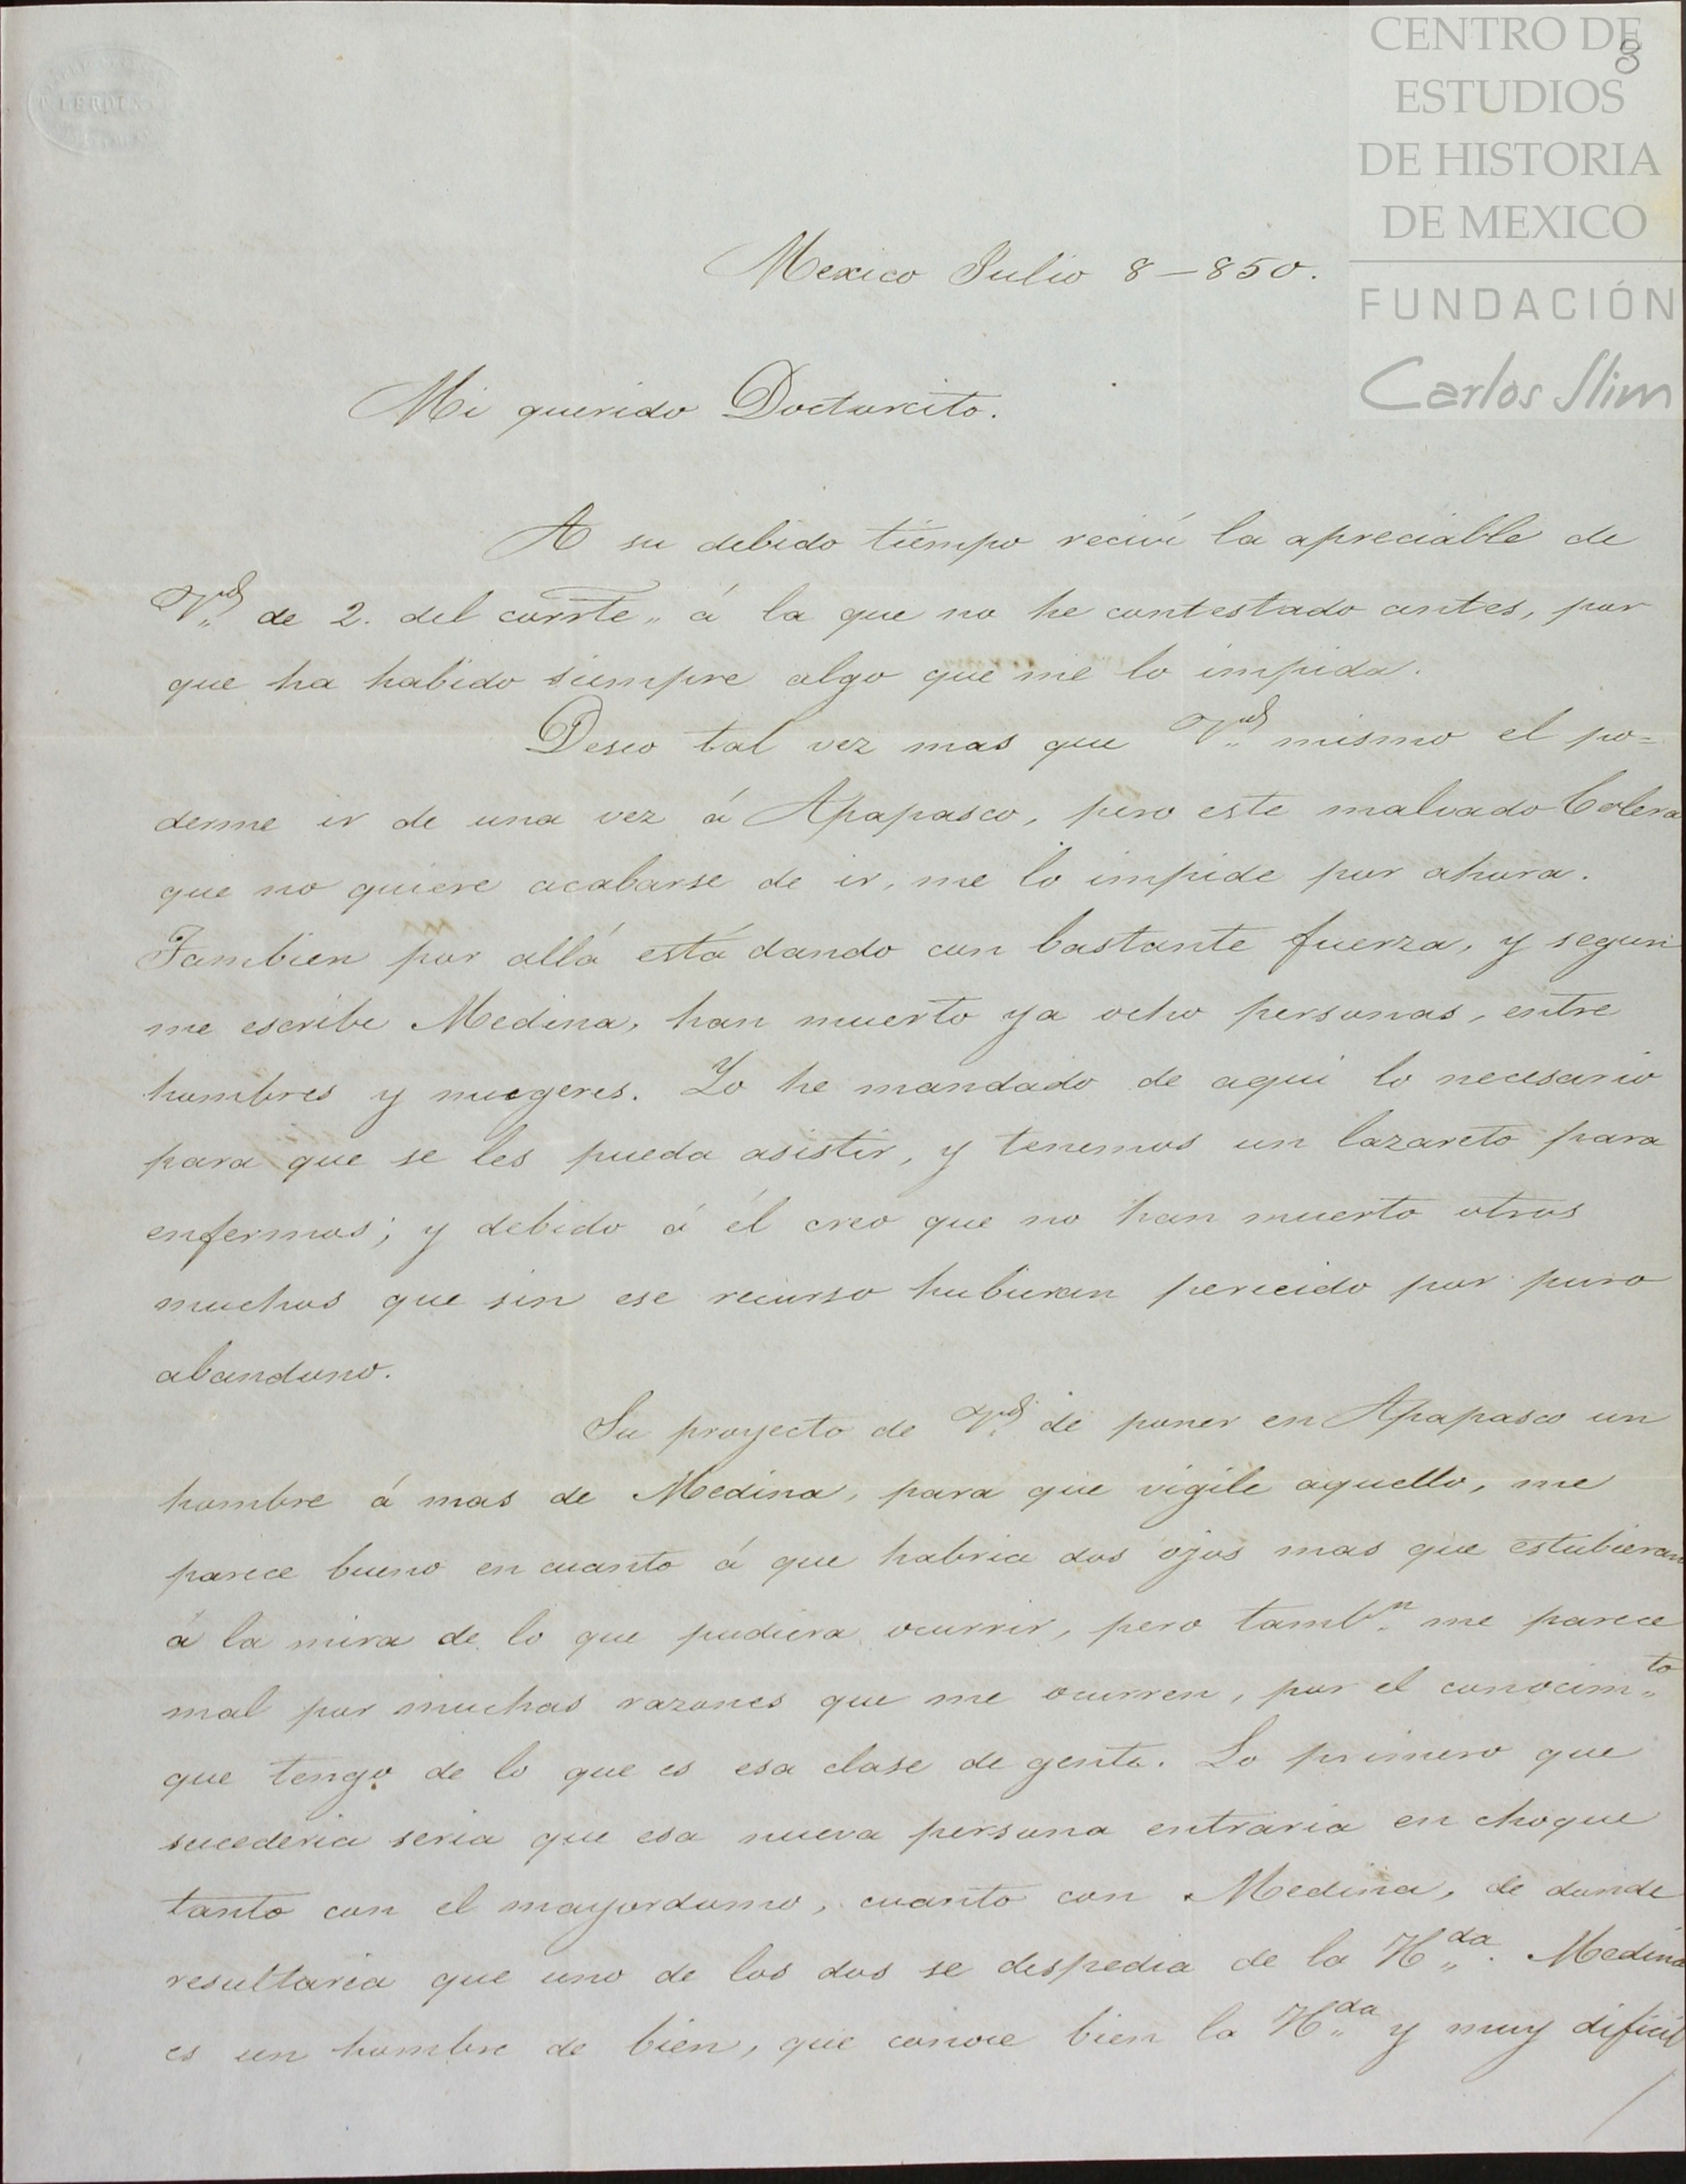 CENTRO DE
ESTUDIOS
DE HISTORIA
DE MEXICO
FUNDACIÓN
Carlos Slim
8
Mexico Julio 8—850.
Mi querido Doctorcito.
A su debido tiempo reciví la apreciable de
V.d de 2. del corrte.. á la que no he contestado antes, por
que ha habido siempre algo que me lo impida.
Deseo tal vez mas que V.d mismo el po=
derme ir de una vez á Apapasco, pero este malvado Colera
que no quiere acabarse de ir, me lo impide por ahora.
Tambien por allá está dando con bastante fuerza, y segun
me escribe Medina, han muerto ya ocho personas, entre
hombres y mugeres. Yo he mandado de aqui lo necesario
para que se les pueda asistir, y tenemos un lazareto para
enfermos; y debido á él creo que no han muerto otros
muchos que sin ese recurso hubieran perecido por puro
abandono.
Su proyecto de V.d de poner en Apapasco un
hombre á mas de Medina, para que vigile aquello, me
parece bueno en cuanto á que habria dos ojos mas que estubieran
á la mira de lo que pudiera ocurrir, pero tamb.n me parece
mal por muchas razones que me ocurren, por el conocim.to
que tengo de lo que es esa clase de gente. Lo primero que
sucederia seria que esa nueva persona entraria en choque
tanto con el mayordomo, cuanto con Medina, de donde
resultaria que uno de los dos se despedia de la H.da. Medina
es un hombre de bien, que conoce bien la H.da y muy dificil